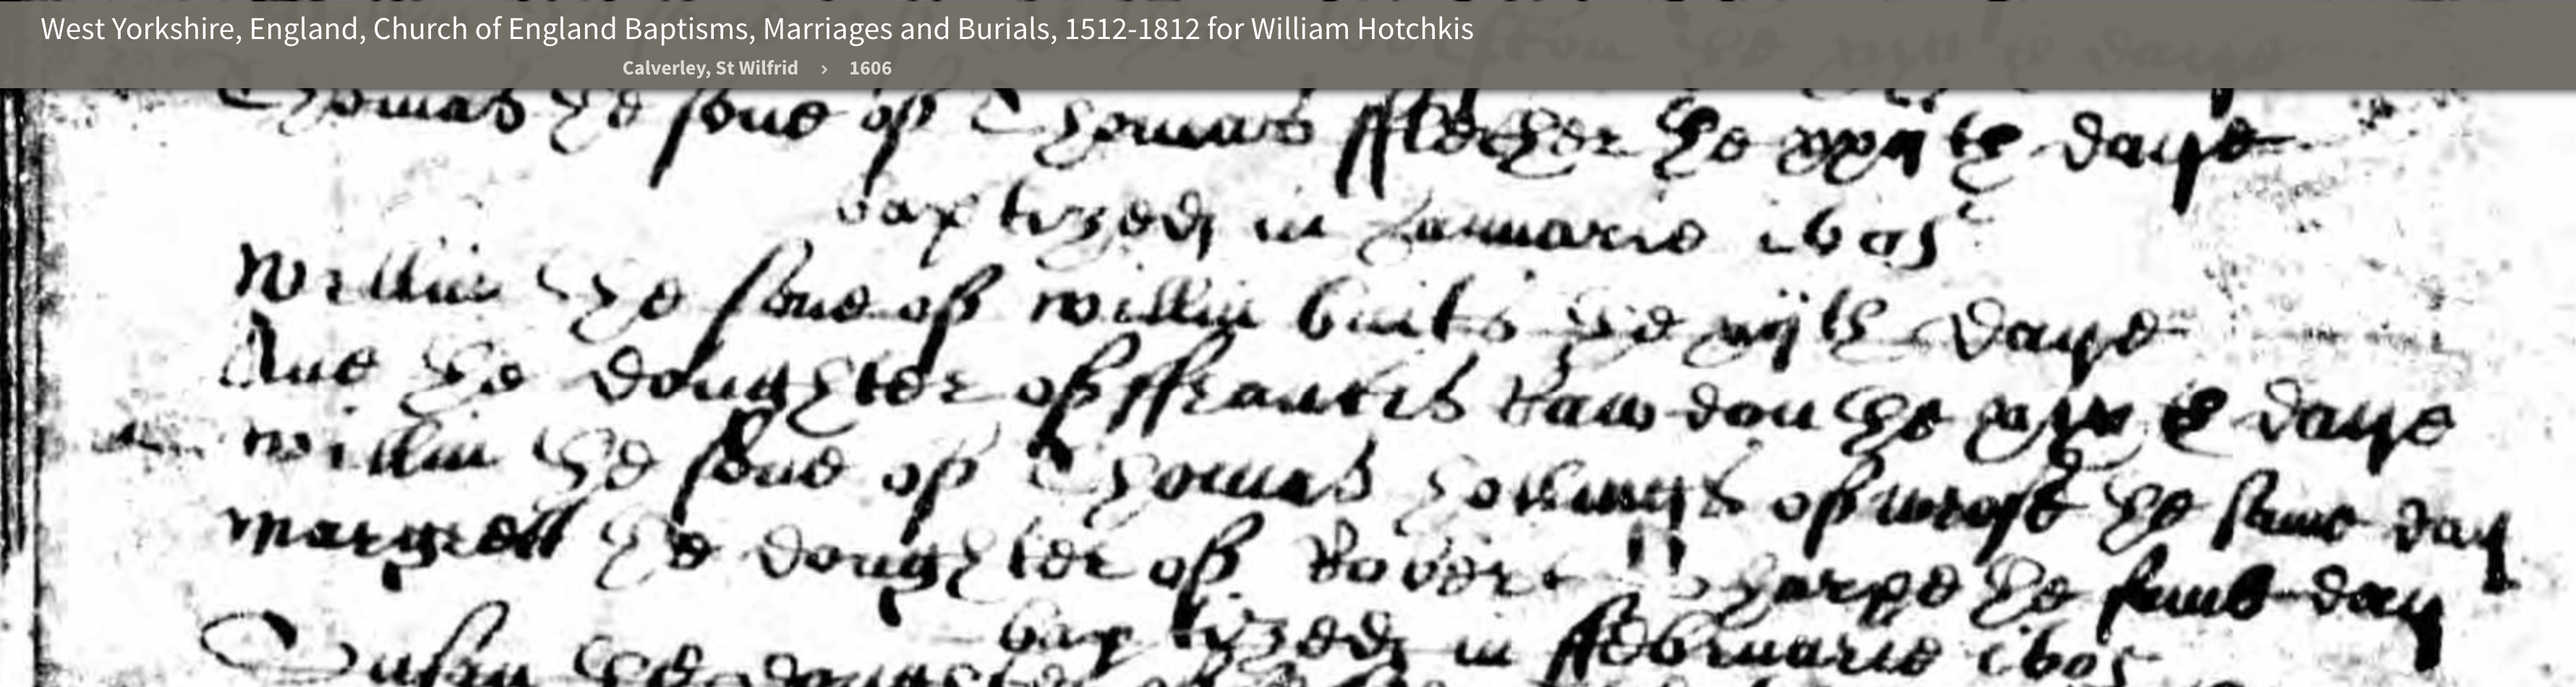 West Yorkshire, England, Church of England Baptisms, Marriages and Burials, 1512-1812 for William Hotchkis
Calverley, St Wilfrid › 1606
Thomas the sone of Thomas ffletcher the xxvj th daye
baptized in Januarie 1605
Willm the sone of Willm the xij th daye
Ane the doughter of ffrancis Rawdon the daye
Willm the sone of Thomas of the same day
Margrett the doughter of Robert Sharpe the same day
baptized in ffebruarie 1605
Susan the doughter